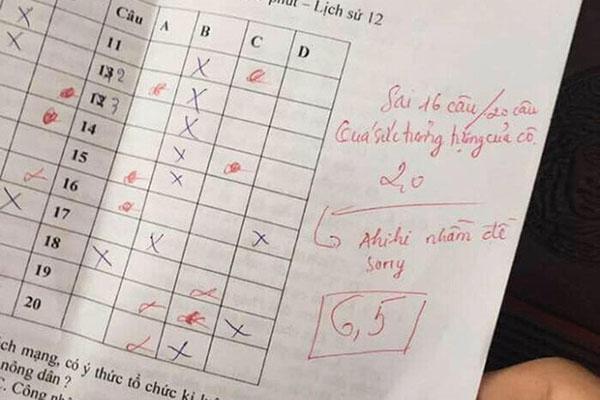 phút - Lịch sử 12
Câu A B C D
11
12
13
14
15
16
17
18
19
20
Sai 16 câu/20 câu
Quá sức tưởng tượng của cô.
2,0
Ahihi nhầm đề
sorry
6,5
ách mạng, có ý thức tổ chức kỉ
nông dân ?
C. Công